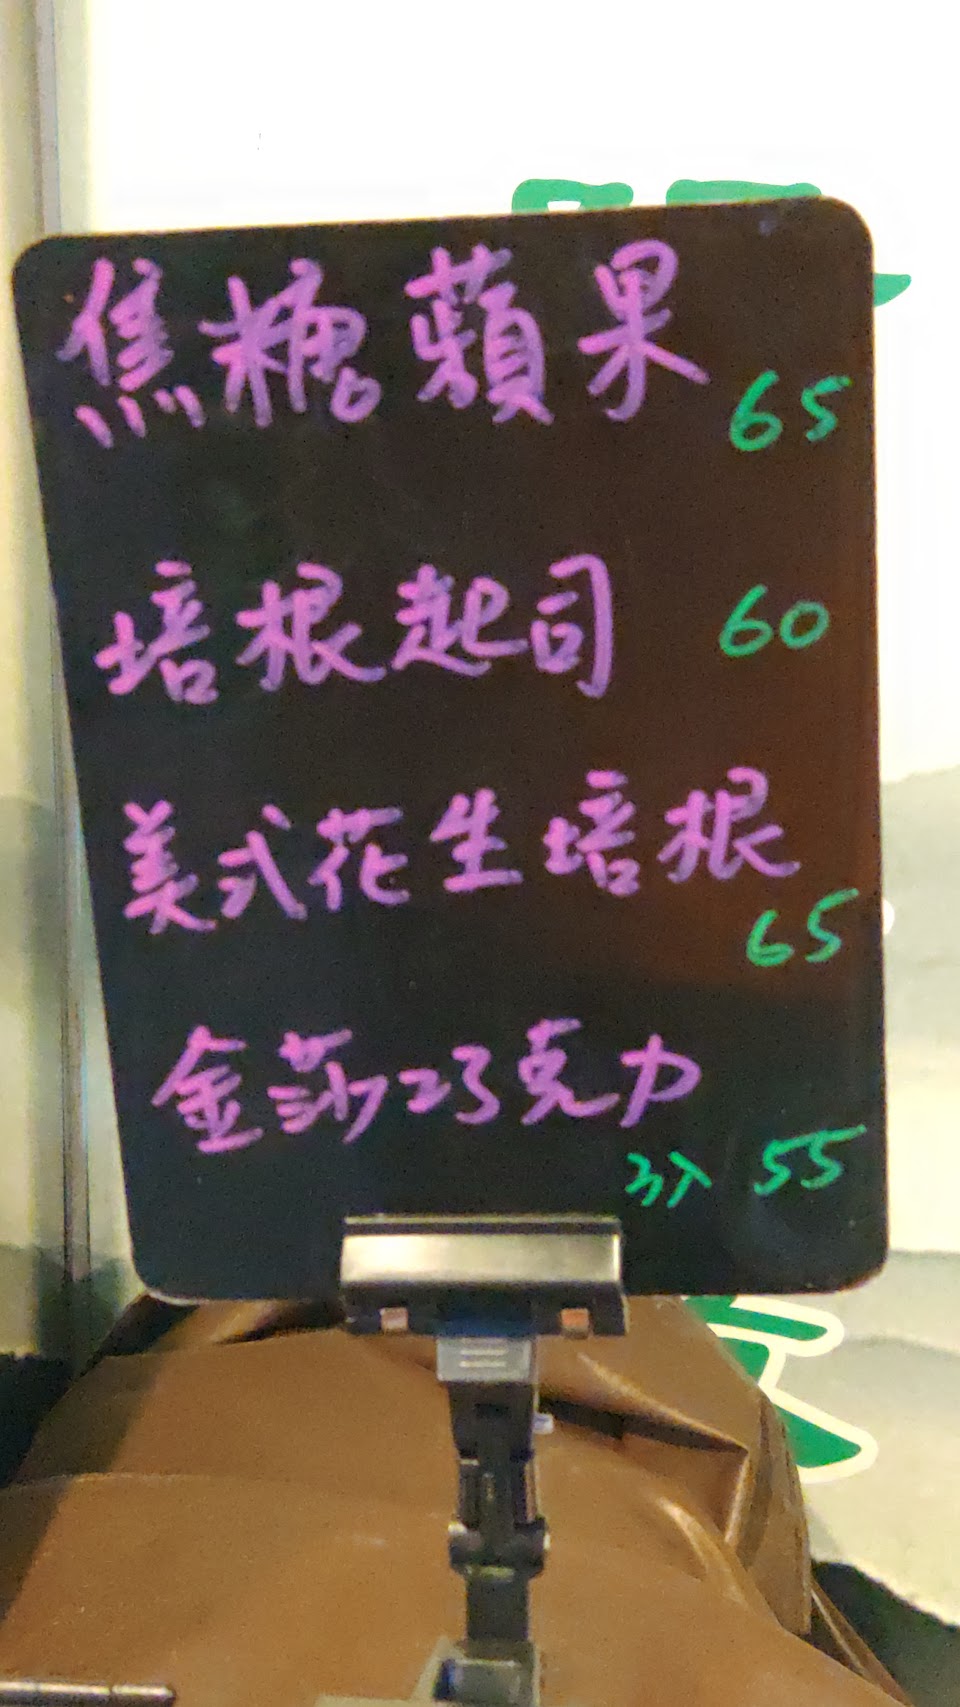 焦糖蘋果 65
培根起司 60
美式花生培根
65
金莎巧克力
55